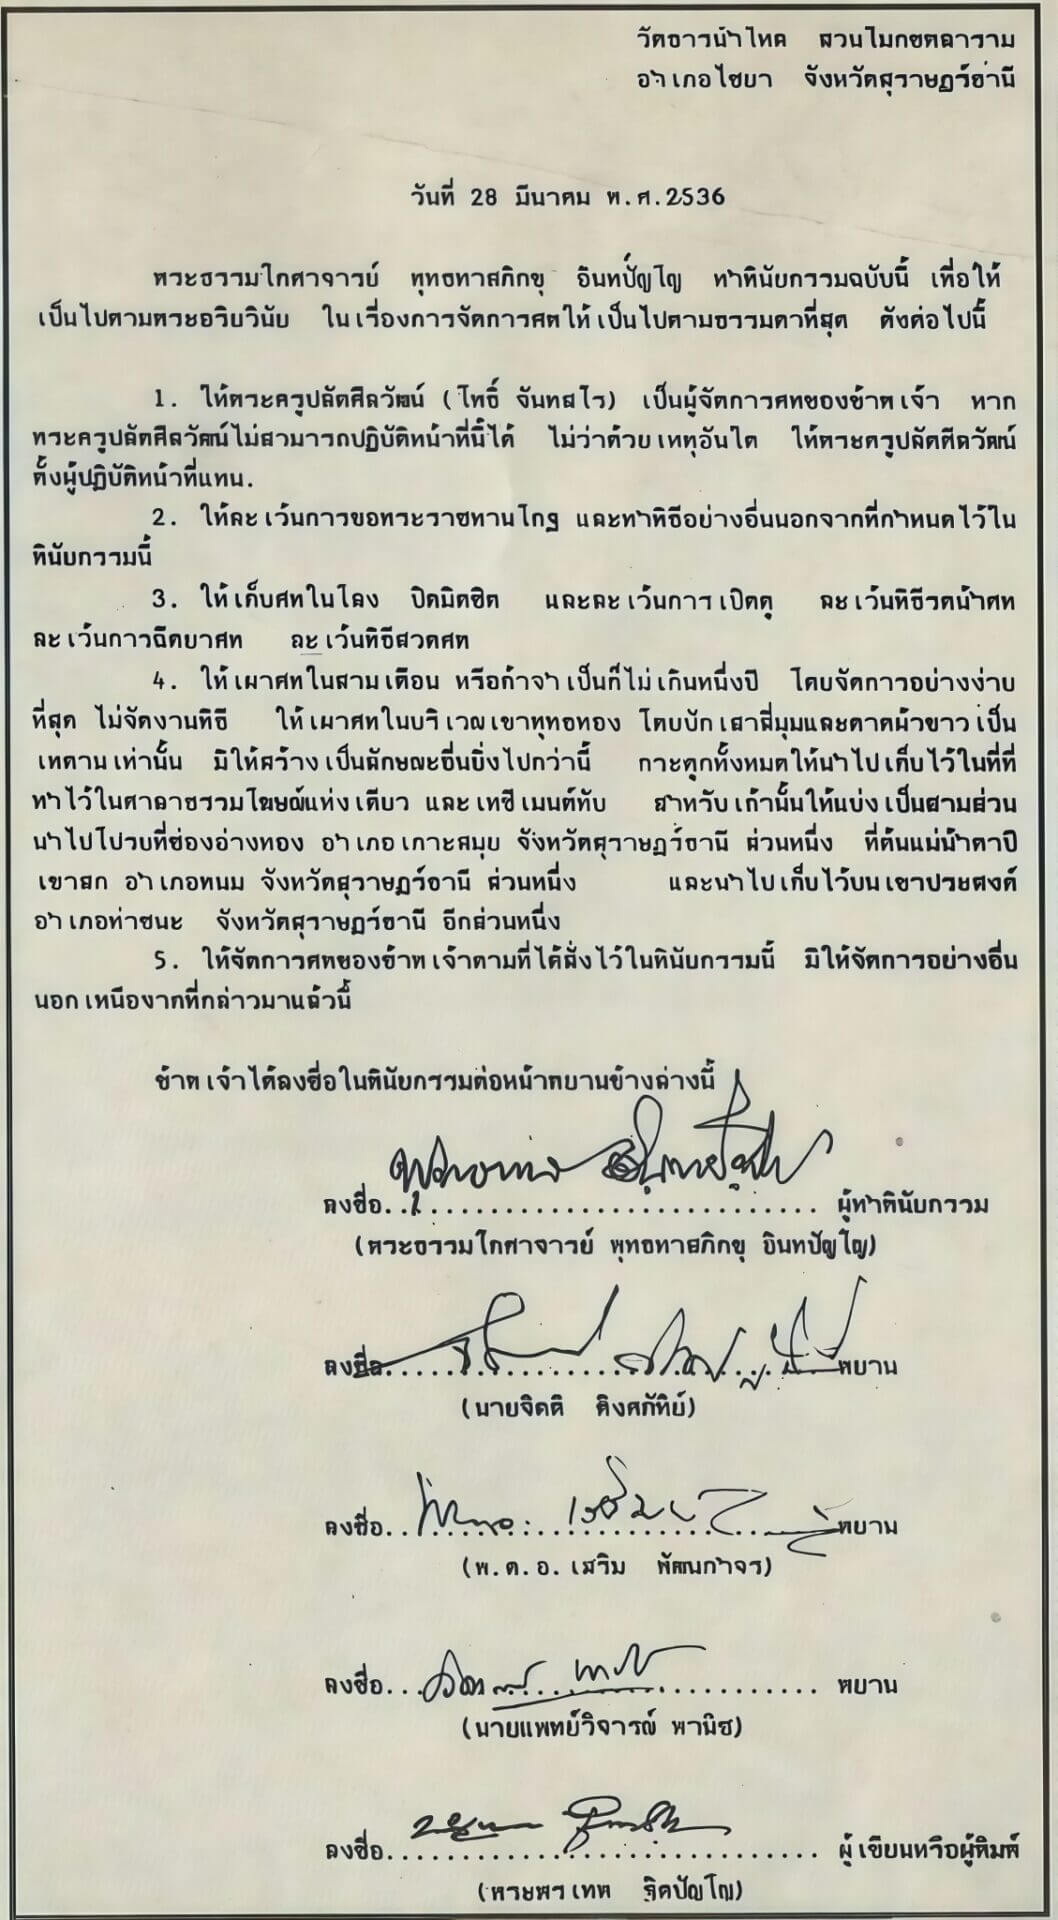 วัดธารน้ำไหล สวนโมกขพลาราม
อำเภอไชยา จังหวัดสุราษฎร์ธานี
วันที่ 28 มีนาคม พ.ศ.2536
พระธรรมโกศาจารย์ พุทธทาสภิกขุ อินทปัญโญ ทำพินัยกรรมฉบับนี้ เพื่อให้
เป็นไปตามพระอริยวินัย ในเรื่องการจัดการศพให้เป็นไปตามธรรมดาที่สุด ดังต่อไปนี้
1. ให้พระครูปลัดศีลวัฒน์ (โพธิ์ จันทสโร) เป็นผู้จัดการศพของข้าพเจ้า หาก
พระครูปลัดศีลวัฒน์ไม่สามารถปฏิบัติหน้าที่นี้ได้ ไม่ว่าด้วยเหตุอันใด ให้พระครูปลัดศีลวัฒน์
ตั้งผู้ปฏิบัติหน้าที่แทน.
2. ให้ละเว้นการขอพระราชทานโกฐ และทำพิธีอย่างอื่นนอกจากที่กำหนดไว้ใน
พินัยกรรมนี้
3. ให้เก็บศพในโลง ปิดมิดชิด และละเว้นการเปิดดู ละเว้นพิธีรดน้ำศพ
ละเว้นการฉีดยาศพ ละเว้นพิธีสวดศพ
4. ให้เผาศพในสามเดือน หรือถ้าจำเป็นก็ไม่เกินหนึ่งปี โดยจัดการอย่างง่าย
ที่สุด ไม่จัดงานพิธี ให้เผาศพในบริเวณเขาพุทธทอง โดยปักเสาสี่มุมและดาดผ้าขาวเป็น
เพดานเท่านั้น มิให้สร้างเป็นลักษณะอื่นยิ่งไปกว่านี้ กระดูกทั้งหมดให้นำไปเก็บไว้ในที่ที่
ทำไว้ในศาลาธรรมโฆษณ์แห่งเดียว และเทซีเมนต์ทับ สำหรับเถ้านั้นให้แบ่งเป็นสามส่วน
นำไปโปรยที่ช่องอ่างทอง อำเภอเกาะสมุย จังหวัดสุราษฎร์ธานี ส่วนหนึ่ง ที่ต้นแม่น้ำตาปี
เขาสก อำเภอพนม จังหวัดสุราษฎร์ธานี ส่วนหนึ่ง และนำไปเก็บไว้บนเขาประสงค์
อำเภอท่าชนะ จังหวัดสุราษฎร์ธานี อีกส่วนหนึ่ง
5. ให้จัดการศพของข้าพเจ้าตามที่ได้สั่งไว้ในพินัยกรรมนี้ มิให้จัดการอย่างอื่น
นอกเหนือจากที่กล่าวมาแล้วนี้
ข้าพเจ้าได้ลงชื่อในพินัยกรรมต่อหน้าพยานข้างล่างนี้
ลงชื่อ.............................. ผู้ทำพินัยกรรม
(พระธรรมโกศาจารย์ พุทธทาสภิกขุ อินทปัญโญ)
ลงชื่อ.............................. พยาน
(นายจิตติ ติงศภัทิย์)
ลงชื่อ.............................. พยาน
(พ.ต.อ.เสริม พัฒนกำจร)
ลงชื่อ.............................. พยาน
(นายแพทย์วิจารณ์ พานิช)
ลงชื่อ.............................. ผู้เขียนหรือผู้พิมพ์
(พระพรเทพ ฐิตปัญโญ)